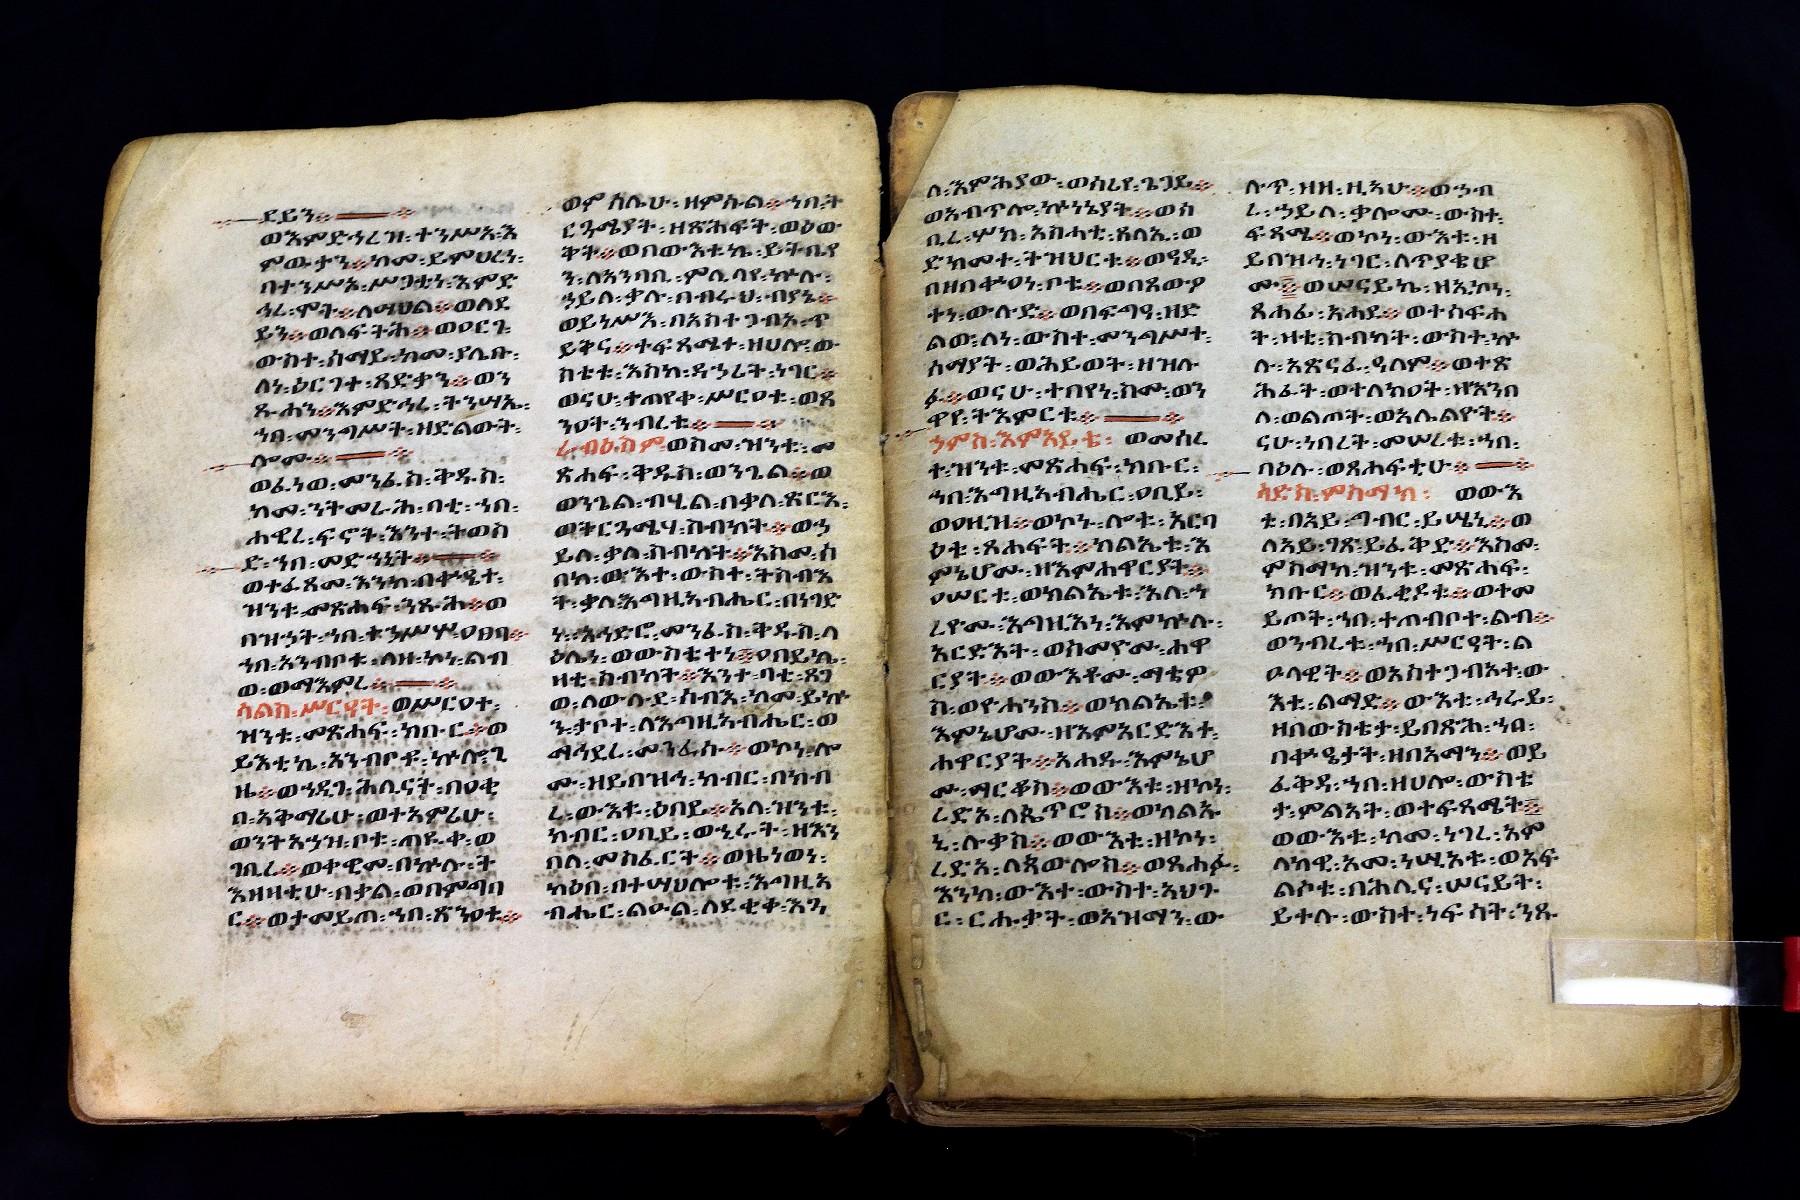 ደይን።
ወእምድኅረዝ፡ተንሥአ፡እ
ምውታን።ከመ፡ይምሀረነ፡
በተንሥኦ፡ሥጋቲነ፡እምድ
ኅረ፡ሞት።ለማህል።ወለደ
ይን።ወለፍትሕ።ወዐርገ፡
ውስተ፡ሰማይ፡ከመ፡ያሌቡ፡
ለነ፡ዕርገተ፡ጻድቃን።ወን
ጹሐን።እምድኅረ፡ትንሣኤ፡
ኀበ፡መንግሥት፡ዘድልውት፡
ሎሙ።
ወፈነወ፡መንፈስ፡ቅዱስ፡
ከመ፡ንትመራሕ፡ባቲ፡ኀበ፡
ሐዊረ፡ፍኖት፡እንተ፡ትወስ
ድ፡ኀበ፡መድኀኒት።
ወተፈጸመ፡እንከ፡በቀዳሚት፡
ዝንቱ፡መጽሐፍ፡ንጹሕ።ወ
ኀበ፡አንብቦቱ፡ለዘ፡ኮነ፡ልብ
ወ፡ወማእምረ።
ሳልስ፡ሥርዓት፡ወሥርዐተ፡
ዝንቱ፡መጽሐፍ፡ክቡር።ወ
ይእቲኬ፡አንብዮቶ፡ኵሎ፡ጊ
ዜ።ወኀዲገ፡ሕሊናት፡በዐቂ
በ፡አቅማሪሁ፡ወተአምሪሁ፡
ወንትአኀዝ፡ቦቱ፡ጠዩቀ፡ወ
ገቢረ።ወቀዊመ፡በኵሉ፡ት
እዘዛቲሁ፡በቃል፡ወበምግባ
ር።ወተመይጠ፡ኀበ፡ጽንዐቱ።
ወምስሌሁ፡ዘምስል።ኀበ፡ት
ርጓሜያት፡ዘጽሕፍት፡ወዕው
ቅት።ወበውእቱኬ፡ይትቤየ
ን፡ለአንባቢ፡ምሊባየ፡ኵሉ፡
ኃይለ፡ቃሉ፡በብሩህ፡ብያኔ።
ወይነሥእ፡በአስተጋብኦ፡ጥ
ይቅና።ተፍጻሜተ፡ዘሀሎ፡ው
ስቴቱ፡እስከ፡ዳኅሪት፡ነገር።
ወናሁ፡ተጠየቀ፡ሥርዐቱ፡ወጸ
ንዐት፡ንብረቱ።
ራብዕ፡ስም፡ወስመ፡ዝንቱ፡መ
ጽሐፍ፡ቅዱስ፡ወንጌል።ወ
ወንጌል፡ብሂል፡በቃለ፡ጽርእ፡
ወትርጓሜሃ፡ስብከት።ወኃ
ይለ፡ቃለ፡ስብከት።እስመ፡ሰ
በከ፡ውእተ፡ውስተ፡ትስብእ
ት፡ቃለ፡እግዚአብሔር፡በነገድ
ነ፡አኅድሮ፡መንፈስ፡ቅዱስ፡ላ
ዕሌነ፡ወውስቴተነ።ዐበይኬ፡
ዛቲ፡ስብከት።እንተ፡ባቲ፡ጸገ
ወ፡ለውሉደ፡ሰብእ፡ከመ፡ይኩ
ኑ፡ታቦተ፡ለእግዚአብሔር፡ወ
ማኅደረ፡መንፈሱ።ወኮነ፡ሎ
ሙ፡ዘይበዝኅ፡ክብር፡በክብ
ረ፡ውእቱ፡ዕበይ።አለ፡ዝንቱ፡
ክብር፡ዐቢይ፡ወኂሩት፡ዘእን
በለ፡መስፈርት።ወዜነወነ፡
ካዕበ፡በተሣህሎቱ፡እግዚአ
ብሔር፡ልዑል፡ለደቂቀ፡እጓ
ለ፡እምሕያው፡ወስሪየ፡ጌጋይ።
ወአብጥሎ፡ኵነኔያት።ወስ
ቢረ፡ሦክ፡አስሓቲ፡ጸላኢ፡ወ
ድክመተ፡ትዝህርቱ።ወዓዲ፡
በዘበቀዐነ፡ቦቱ።ወበጸውዖ
ተነ፡ውሉደ።ወበፍግዓ፡ዘድ
ልው፡ለነ፡ውስተ፡መንግሥተ፡
ሰማያት፡ወሕይወት፡ዘዝሉ
ፉ።ወናሁ፡ተበየነ፡ስሙ፡ወን
ዋየ፡ትእምርቱ።
ኃምስ፡እምአይቴ፡ወመሰረ
ተ፡ዝንቱ፡መጽሐፍ፡ክቡር፡
ኀበ፡እግዚአብሔር፡ዐቢይ፡
ወዐዚዝ።ወኮኑ፡ሎቱ፡አርባ
ዕቱ፡ጸሐፍት።ክልኤቱ፡እ
ምኔሆሙ፡ዘእምሐዋርያት።
ዐሠርቱ፡ወክልኤቱ፡እለ፡ኀ
ረዮሙ፡እግዚእነ፡እምኵሉ፡
አርድእት፡ወሰመዮሙ፡ሐዋ
ርያት።ወውእቶሙ፡ማቴዎ
ስ፡ወዮሐንስ።ወክልኤቱ፡
እምኔሆሙ፡ዘእምአርድእተ፡
ሐዋርያት።አሐዱ፡እምኔሆ
ሙ፡ማርቆስ።ወውእቱ፡ዘኮነ፡
ረድአ፡ለጴጥሮስ።ወካልእ
ኒ፡ሉቃስ።ወውእቱ፡ዘኮነ፡
ረድአ፡ለጳውሎስ።ወጸሐፉ፡
እንከ፡ውእተ፡ውስተ፡አህጉ
ር፡ርሑቃት፡ወአዝማን፡ው
ሉጥ፡ዘዘ፡ዚኣሁ።ወኃብ
ረ፡ኃይለ፡ቃሎሙ፡ውስተ፡
ፍጻሜ።ወኮነ፡ውእቱ፡ዘ
ይበዝኅ፡ነገር፡ለጥያቄሆ
ሙ።ወሠናይኬ፡ዘኢኮነ፡
ጸሐፊ፡አሐደ።ወተስፍሐ
ት፡ዛቲ፡ስብከት፡ውስተ፡ኵ
ሉ፡አጽናፈ፡ዓለም።ወተጽ
ሕፈት፡ወተለክዐት፡ዘእንበ
ለ፡ወልጦት፡ወአሌልዮት።
ናሁ፡ነበረት፡መሠረቱ፡ኀበ፡
በዕሉ፡ወጸሐፍቲሁ።
ሳድስ፡ምስማክ፡ወውእ
ቱ፡በአይ፡ግብር፡ይሤኒ።ወ
ለአይ፡ገጽ፡ይፈቅድ።እስመ፡
ምስማከ፡ዝንቱ፡መጽሐፍ፡
ክቡር።ወፈቂዶቱ።ወተመ
ይጦት፡ኀበ፡ተጠብቦተ፡ልብ።
ወንብረቱ፡ኀበ፡ሥርዓት፡ል
ዑላዊት።ወአስተጋብአተ፡ው
እቱ፡ልማድ።ውእቱ፡ኅሩይ፡
ዘበውስቴታ፡ይበጽሕ፡ኀበ፡
በቍዔታት፡ዘበአማን።ወይ
ፈቅዳ፡ኀበ፡ዘሀሎ፡ውስቴ
ታ፡ምልአት፡ወተፍጻሜት።
ወውእቱ፡ከመ፡ነገረ፡አም
ላካዊ፡አመ፡ነሢአቱ፡ወአፍ
ልኮቱ፡በሕሊና፡ሠናይት፡
ይተሉ፡ውስተ፡ነፍሳት፡ንጹ